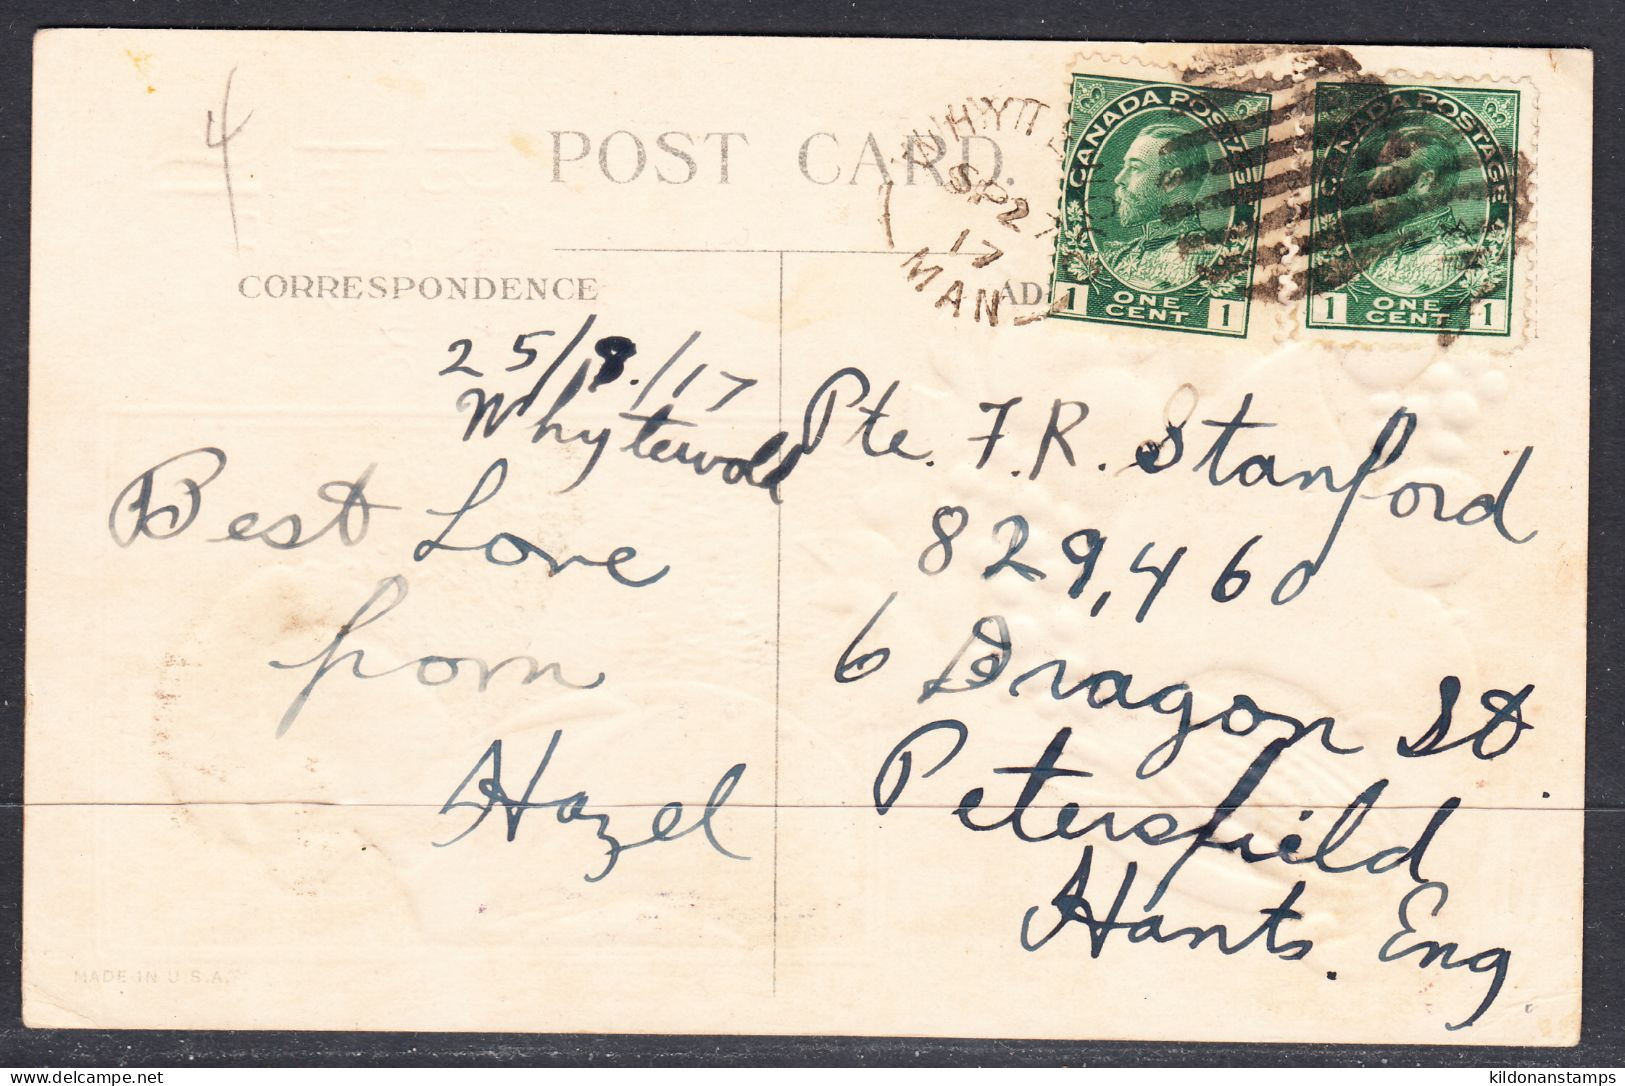 4
POST CARD.
CORRESPONDENCE
WHYTEWOLD
SP 27
17
MAN
CANADA POSTAGE
1 ONE CENT 1
CANADA POSTAGE
1 ONE CENT 1
25/8./17
Whytewold
Best Love
from
Hazel
Pte. F.R. Stanford
829,460
6 Dragon St.
Petersfield
Hants. Eng.
MADE IN U.S.A.
kildonanstamps